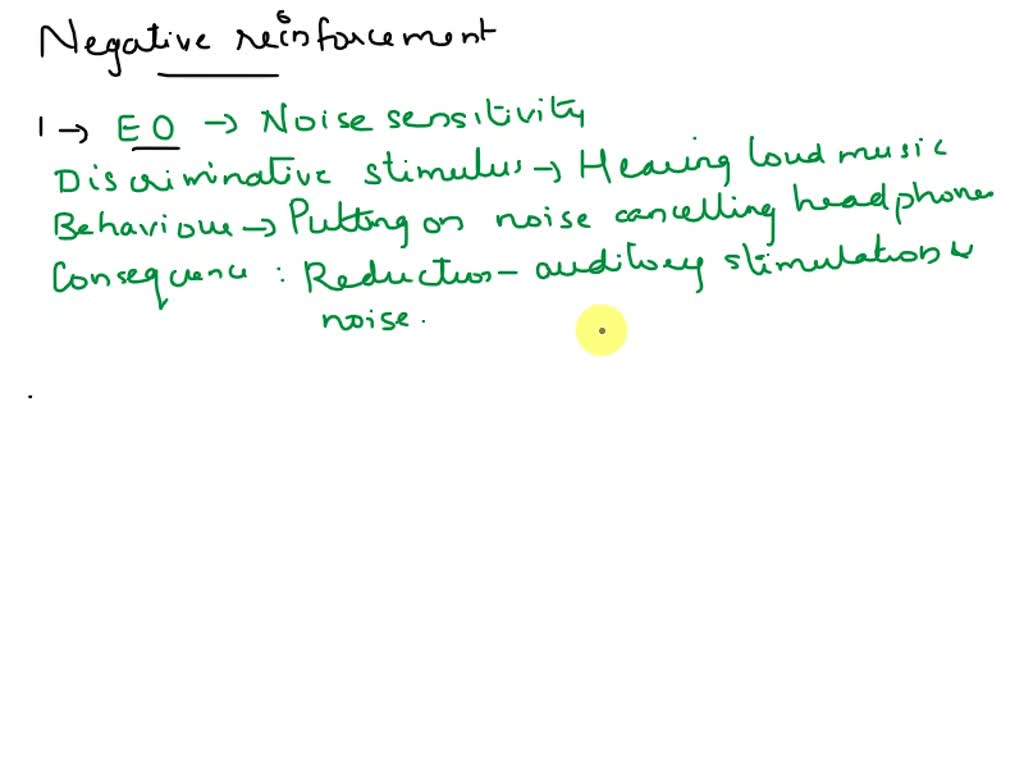 Negative reinforcement
1 → EO → Noise sensitivity
Discriminative stimulus → Hearing loud music
Behaviour → Putting on noise cancelling headphones
Consequence : Reduction - auditory stimulation &
noise.